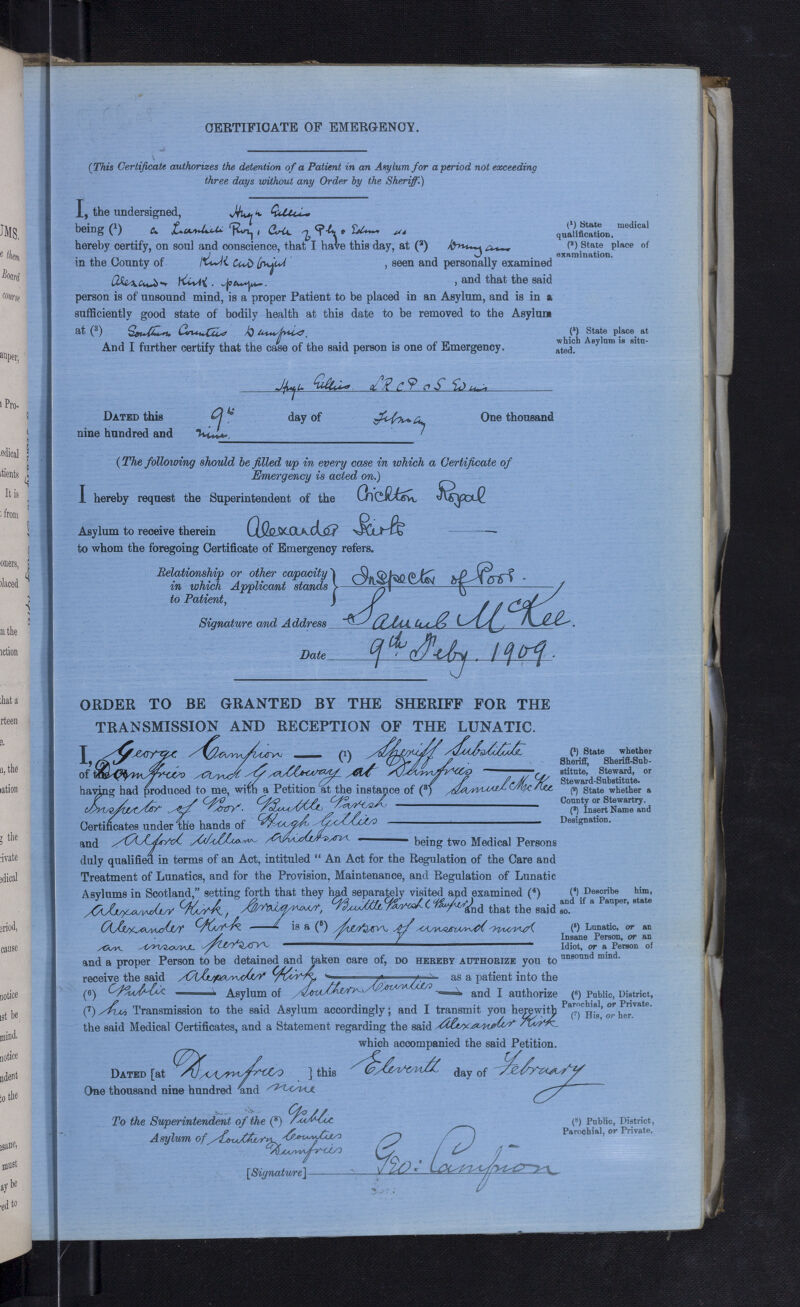 CERTIFICATE OF EMERGENCY.
(This Certificate authorizes the detention of a Patient in an Asylum for a period not exceeding
three days without any Order by the Sheriff.)
I, the undersigned, Hugh Gillies
being (¹) a Licentiate Roy, Coll
(¹) State medical
qualification.
hereby certify, on soul and conscience, that I have this day, at (²)
(²) State place of
examination.
in the County of Kirkcudbright , seen and personally examined
Alexander Kirk. pauper. , and that the said
person is of unsound mind, is a proper Patient to be placed in an Asylum, and is in a
sufficiently good state of bodily health at this date to be removed to the Asylum
at (³) Southern Counties Dumfries.
(³) State place at
which Asylum is situ-
ated.
And I further certify that the case of the said person is one of Emergency.
Hugh Gillies L R C P & S Edin
DATED this 9th day of February One thousand
nine hundred and nine.
(The following should be filled up in every case in which a Certificate of
Emergency is acted on.)
I hereby request the Superintendent of the Crichton Royal
Asylum to receive therein Alexander Kirk
to whom the foregoing Certificate of Emergency refers.
Relationship or other capacity
in which Applicant stands
to Patient,
Inspector of Poor.
Signature and Address Samuel McKee.
Date 9th Feby. 1909.
ORDER TO BE GRANTED BY THE SHERIFF FOR THE
TRANSMISSION AND RECEPTION OF THE LUNATIC.
I, George Campion (¹) Sheriff Substitute
(¹) State whether
Sheriff, Sheriff-Sub-
stitute, Steward, or
Steward-Substitute.
of Dumfries and Galloway at Dumfries
having had produced to me, with a Petition at the instance of (²) Samuel McKee
(²) State whether a
County or Stewartry.
Inspector of Poor. Buittle Parish
(³) Insert Name and
Designation.
Certificates under the hands of Hugh Gillies
and Alford William Anderson being two Medical Persons
duly qualified in terms of an Act, intituled " An Act for the Regulation of the Care and
Treatment of Lunatics, and for the Provision, Maintenance, and Regulation of Lunatic
Asylums in Scotland," setting forth that they had separately visited and examined (⁴)
(⁴) Describe him,
and if a Pauper, state
so.
Alexander Kirk, Craignair, Buittle Parish (Pauper) and that the said
Alexander Kirk is a (⁵) person of unsound mind
(⁵) Lunatic, or an
Insane Person, or an
Idiot, or a Person of
unsound mind.
an insane person
and a proper Person to be detained and taken care of, DO HEREBY AUTHORIZE you to
receive the said Alexander Kirk, as a patient into the
(⁶) Public Asylum of Southern Counties and I authorize
(⁶) Public, District,
Parochial, or Private.
(⁷) his Transmission to the said Asylum accordingly; and I transmit you herewith
(⁷) His, or her.
the said Medical Certificates, and a Statement regarding the said Alexander Kirk
which accompanied the said Petition.
DATED [at Dumfries ] this Eleventh day of February
One thousand nine hundred and nine
To the Superintendent of the (⁸) Public
(⁸) Public, District,
Parochial, or Private.
Asylum of Southern Counties
Dumfries
[Signature] Geo: Campion